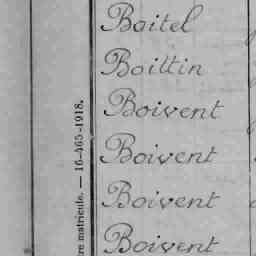 Boitel
Boittin
Boivent
Boivent
Boivent
Boivent
re matricule. — 16-465-1918.